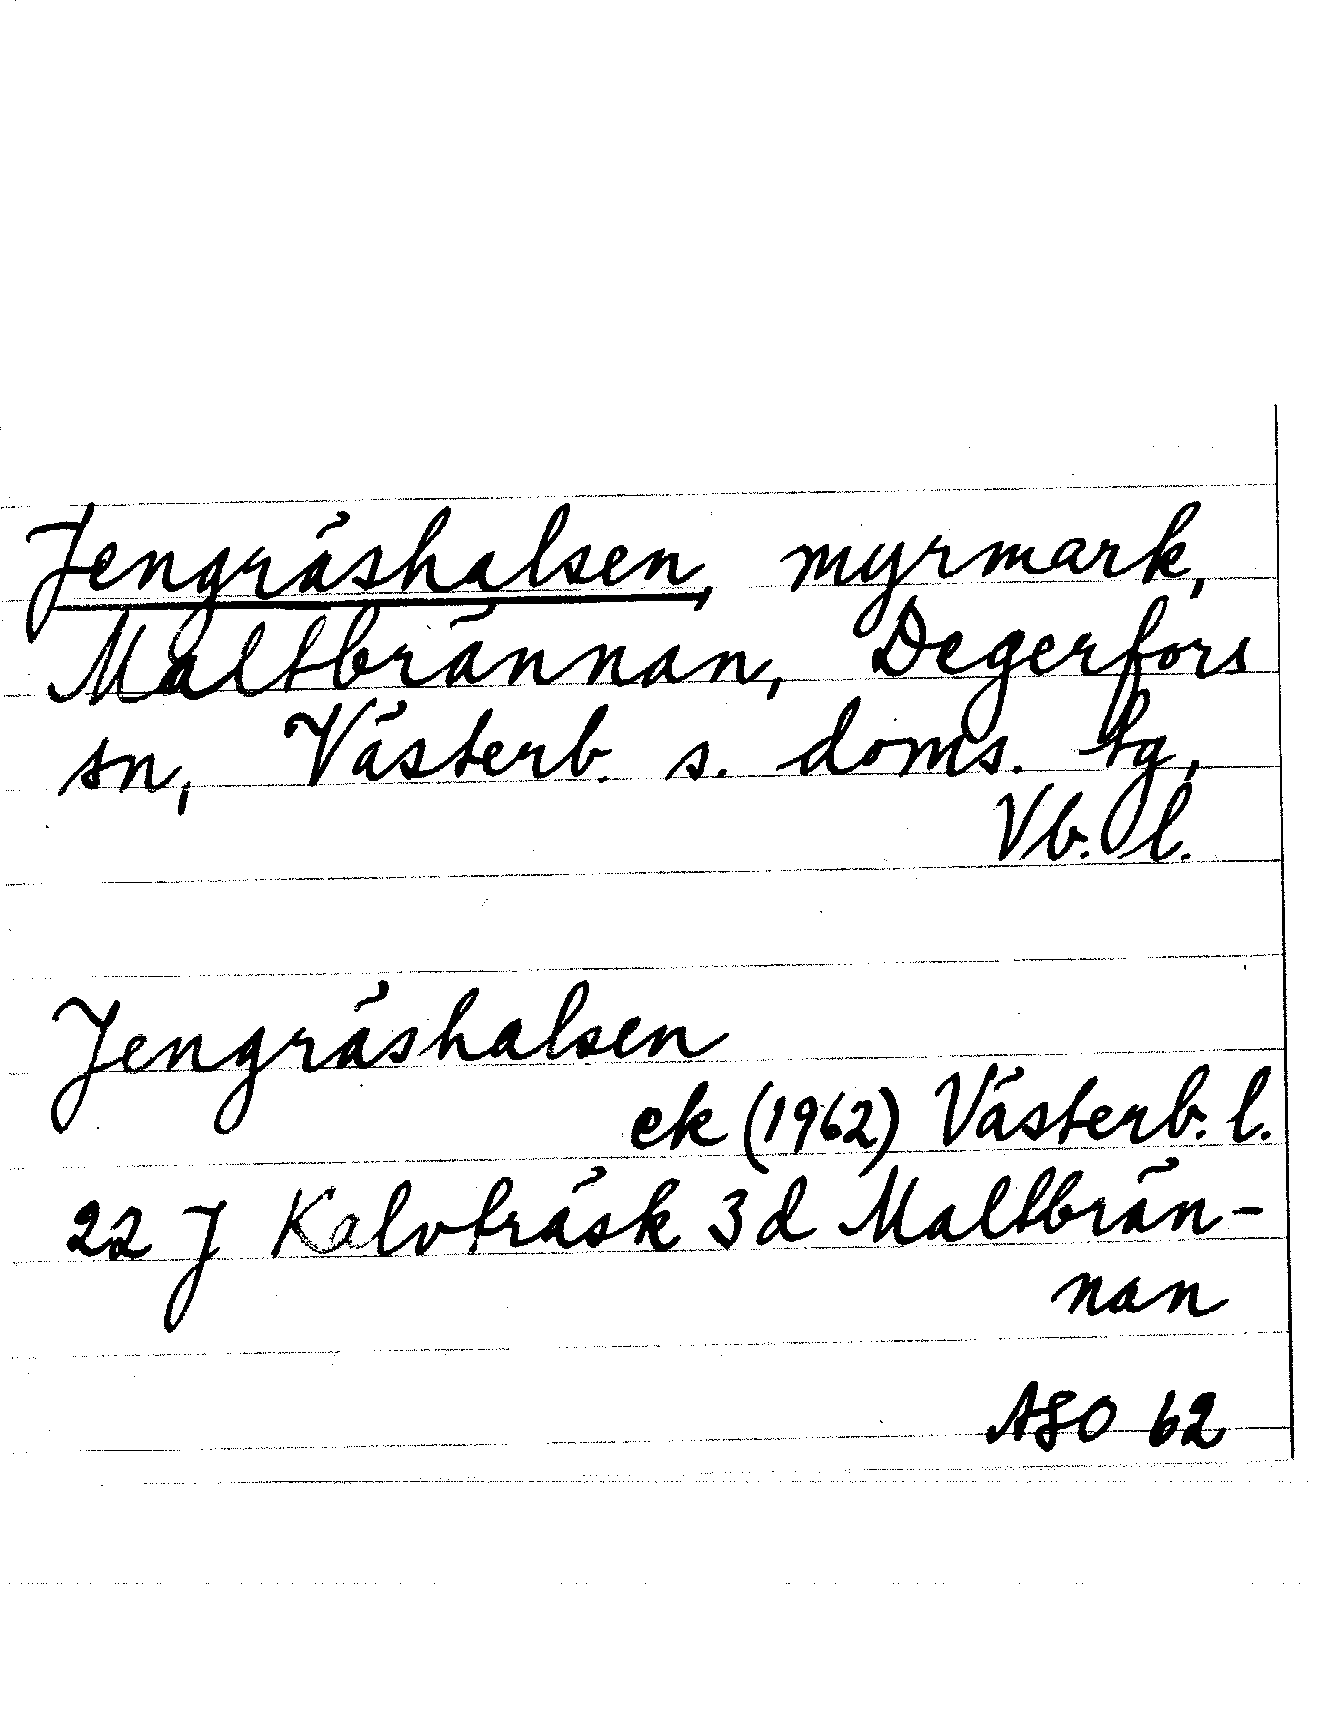 Jengräshalsen, myrmark,
Maltbrännan, Degerfors
sn, Västerb. s. doms. tg,
Vb. l.
Jengräshalsen
ek (1962) Västerb. l.
22 J Kalvträsk 3d Maltbrän-
nan
ASO 62